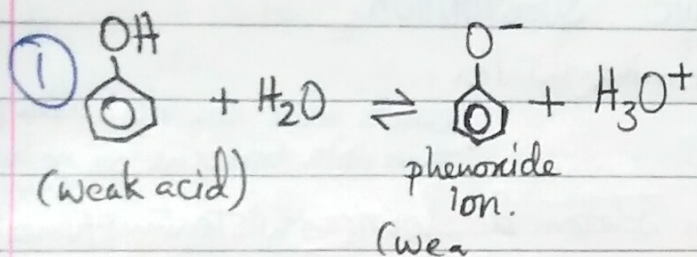 OH O⁻
① + H₂O ⇌ + H₃O⁺
(weak acid) phenoxide
ion.
(wea